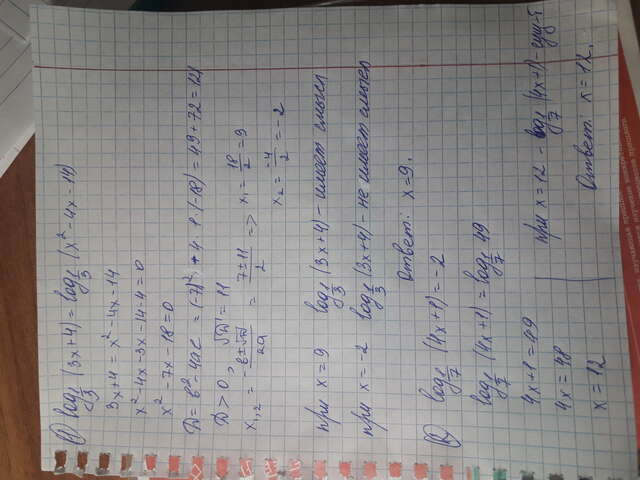 ① log_{1/3} (3x+4) = log_{1/3} (x² - 4x - 14)
3x+4 = x² - 4x - 14
x² - 4x - 3x - 14 - 4 = 0
x² - 7x - 18 = 0
D = b² - 4ac = (-7)² - 4 · 1 · (-18) = 49 + 72 = 121
D > 0, √D = 11
x_{1,2} = (-b ± √D)/2a = (7 ± 11)/2 => x₁ = 18/2 = 9
x₂ = -4/2 = -2
при x = 9 log_{1/3} (3x+4) - имеет смысл
при x = -2 log_{1/3} (3x+4) - не имеет смысл
Ответ: x=9.
② log_{1/7} (4x+1) = -2
log_{1/7} (4x+1) = log_{1/7} 49
4x+1 = 49
4x = 48
x = 12
при x = 12 - log_{1/7} (4x+1) - сущ-т
Ответ: x = 12.